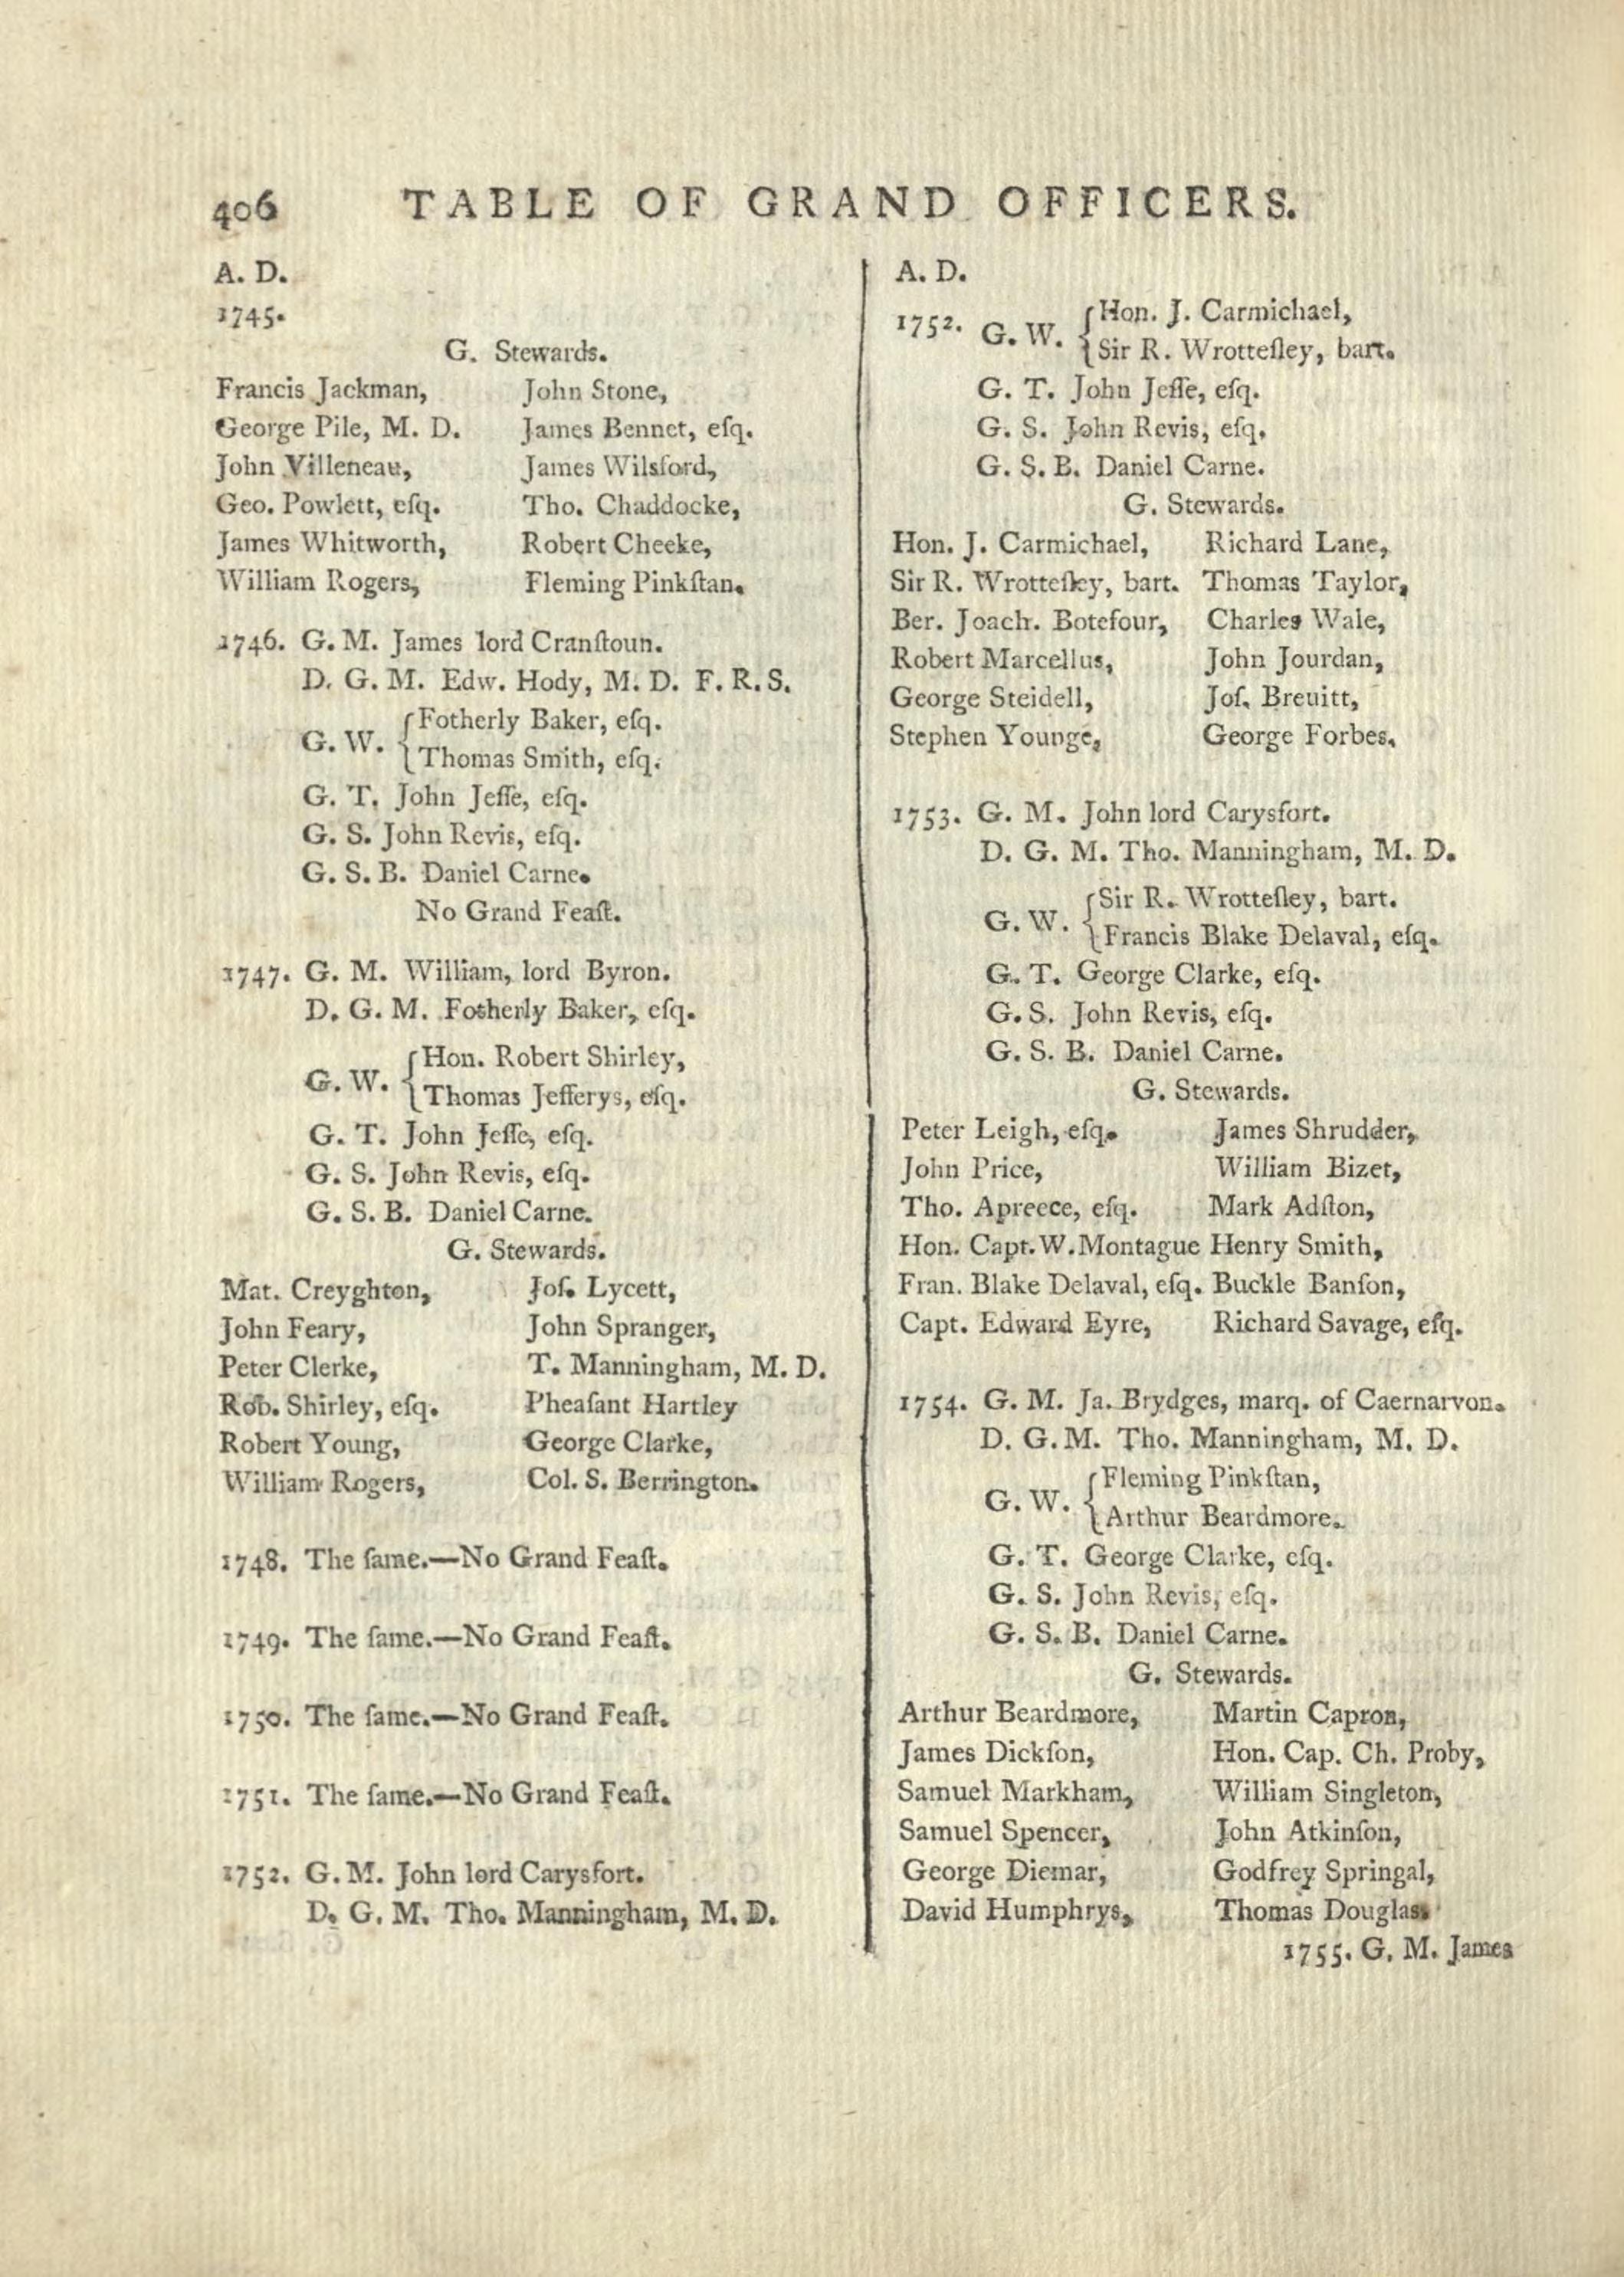 406 TABLE OF GRAND OFFICERS.
A. D.
1745.
G. Stewards.
Francis Jackman, John Stone,
George Pile, M. D. James Bennet, eſq.
John Villeneau, James Wilsford,
Geo. Powlett, eſq. Tho. Chaddocke,
James Whitworth, Robert Cheeke,
William Rogers, Fleming Pinkſtan.
1746. G. M. James lord Cranſtoun.
D. G. M. Edw. Hody, M. D. F. R. S.
G. W. { Fotherly Baker, eſq.
Thomas Smith, eſq.
G. T. John Jeſſe, eſq.
G. S. John Revis, eſq.
G. S. B. Daniel Carne.
No Grand Feaſt.
1747. G. M. William, lord Byron.
D. G. M. Fotherly Baker, eſq.
G. W. { Hon. Robert Shirley,
Thomas Jefferys, eſq.
G. T. John Jeſſe, eſq.
G. S. John Revis, eſq.
G. S. B. Daniel Carne.
G. Stewards.
Mat. Creyghton, Joſ. Lycett,
John Feary, John Spranger,
Peter Clerke, T. Manningham, M. D.
Rob. Shirley, eſq. Pheaſant Hartley
Robert Young, George Clarke,
William Rogers, Col. S. Berrington.
1748. The ſame.—No Grand Feaſt.
1749. The ſame.—No Grand Feaſt.
1750. The ſame.—No Grand Feaſt.
1751. The ſame.—No Grand Feaſt.
1752. G. M. John lord Carysfort.
D. G. M. Tho. Manningham, M. D.
A. D.
1752. G. W. { Hon. J. Carmichael,
Sir R. Wrotteſley, bart.
G. T. John Jeſſe, eſq.
G. S. John Revis, eſq.
G. S. B. Daniel Carne.
G. Stewards.
Hon. J. Carmichael, Richard Lane,
Sir R. Wrotteſley, bart. Thomas Taylor,
Ber. Joach. Botefour, Charles Wale,
Robert Marcellus, John Jourdan,
George Steidell, Joſ. Breuitt,
Stephen Younge, George Forbes.
1753. G. M. John lord Carysfort.
D. G. M. Tho. Manningham, M. D.
G. W. { Sir R. Wrotteſley, bart.
Francis Blake Delaval, eſq.
G. T. George Clarke, eſq.
G. S. John Revis, eſq.
G. S. B. Daniel Carne.
G. Stewards.
Peter Leigh, eſq. James Shrudder,
John Price, William Bizet,
Tho. Apreece, eſq. Mark Adſton,
Hon. Capt. W. Montague Henry Smith,
Fran. Blake Delaval, eſq. Buckle Banſon,
Capt. Edward Eyre, Richard Savage, eſq.
1754. G. M. Ja. Brydges, marq. of Caernarvon.
D. G. M. Tho. Manningham, M. D.
G. W. { Fleming Pinkſtan,
Arthur Beardmore.
G. T. George Clarke, eſq.
G. S. John Revis, eſq.
G. S. B. Daniel Carne.
G. Stewards.
Arthur Beardmore, Martin Capron,
James Dickſon, Hon. Cap. Ch. Proby,
Samuel Markham, William Singleton,
Samuel Spencer, John Atkinſon,
George Diemar, Godfrey Springal,
David Humphrys, Thomas Douglas.
1755. G. M. James